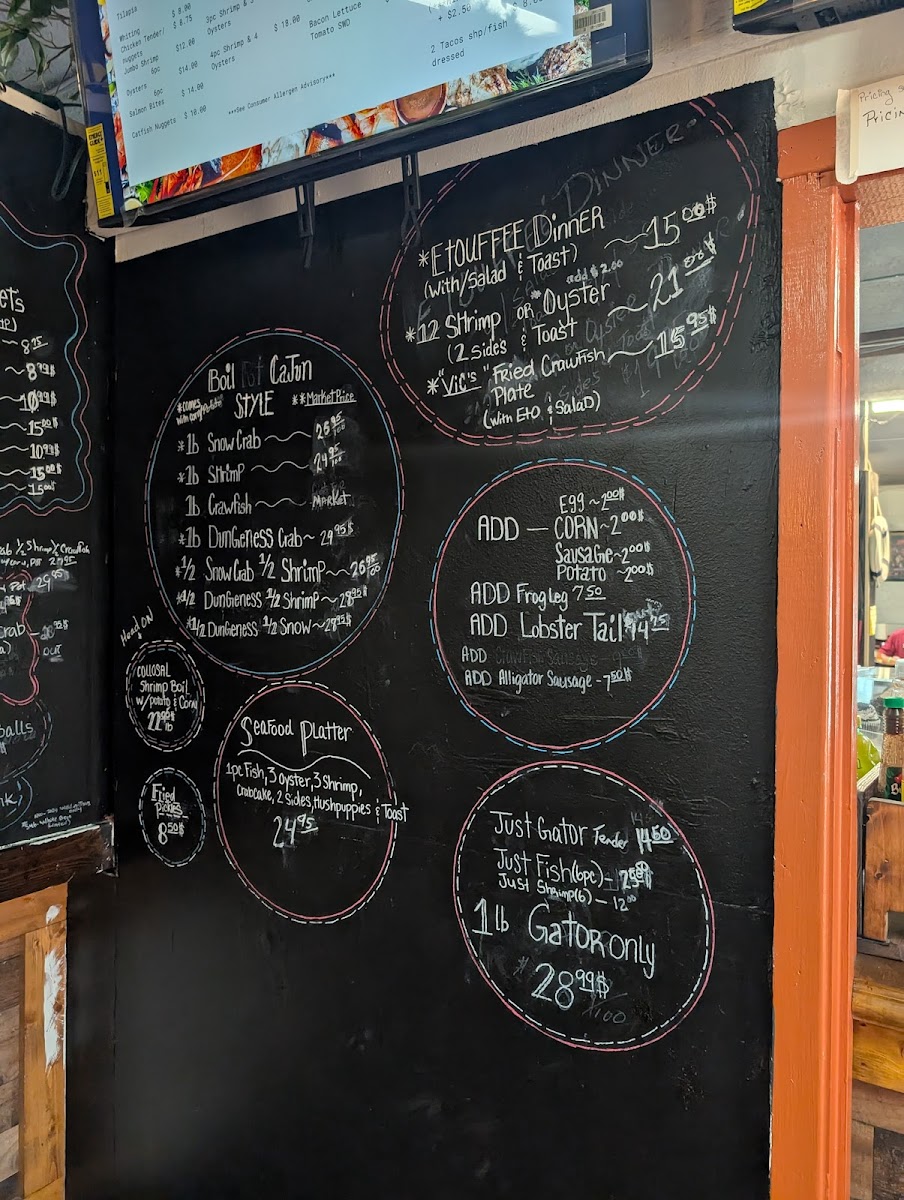 Tilapia $ 8.00
Whiting $ 8.75
Chicken Tender/
Jumbo Shrimp $12.00
6pc
Oysters 6pc $14.00
Salmon Bites $ 14.00
Catfish Nuggets $ 10.00
3pc Shrimp & 3
Oysters $ 18.00
4pc Shrimp & 4
Oysters
Bacon Lettuce
Tomato SWD
+ $2.50
2 Tacos shp/fish
dressed
***See Consumer Allergen Advisory***
Pricing
Pricin
*ETOUFFEE DinnER ~ 15.00$
(with/Salad & Toast)
add $2.00
*12 Shrimp or *Oyster ~ 21.00$
(2 Sides & Toast
*"Vic's" Fried Crawfish ~ 15.95$
Plate
(with Eto & Salad)
Boil Pot Cajun
STYLE
**Market Price
*1b Snow Crab ~
*1b Shrimp ~ 24.95
1b Crawfish ~ Market
*1b Dungeness Crab ~ 29.95$
*1/2 Snow Crab 1/2 Shrimp ~ 26.95
*1/2 Dungeness 1/2 Shrimp ~ 28.95$
*1/2 Dungeness 1/2 Snow ~ 29.95$
ADD — Egg ~ 2.00$
CORN ~ 2.00$
Sausage ~ 2.00$
Potato ~ 2.00$
ADD Frog Leg 7.50
ADD Lobster Tail 14.25
ADD Crawfish Sausage
ADD Alligator Sausage - 7.50$
Head ON
COLLOSAL
Shrimp Boil
w/potato & Corn
22.99$
lb
Fried
8.50$
Seafood Platter
1pc Fish, 3 Oyster, 3 Shrimp,
Crabcake, 2 Sides, Hushpuppies & Toast
24.95
Just Gator Tender 14.50
Just Fish (6pc) -
Just Shrimp (6) - 12.00
1lb Gator only
28.99$
/100
~ 8.75
~ 8.99$
10.99$
~ 15.00$
~ 10.99$
~ 15.00$
~ 15.00$
1/2 Shrimp 1/2 Crawfish
29.95
OUT
balls